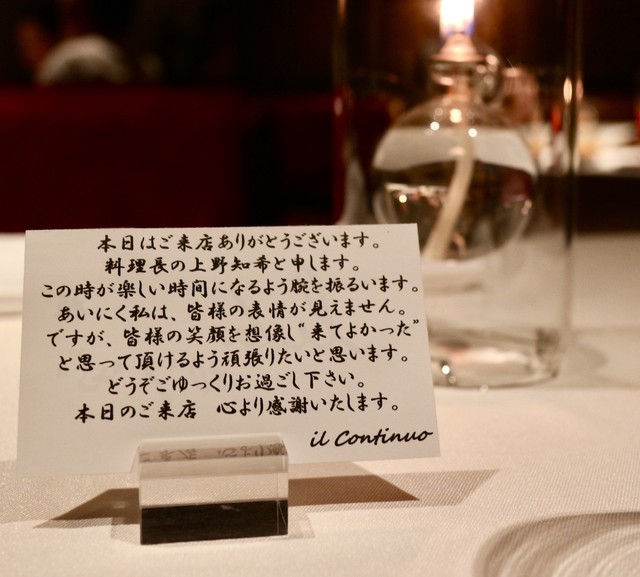 本日はご来店ありがとうございます。
料理長の上野知希と申します。
この時が楽しい時間になるよう腕を振るいます。
あいにく私は、皆様の表情が見えません。
ですが、皆様の笑顔を想像し“来てよかった”
と思って頂けるよう頑張りたいと思います。
どうぞごゆっくりお過ごし下さい。
本日のご来店　心より感謝いたします。
il Continuo